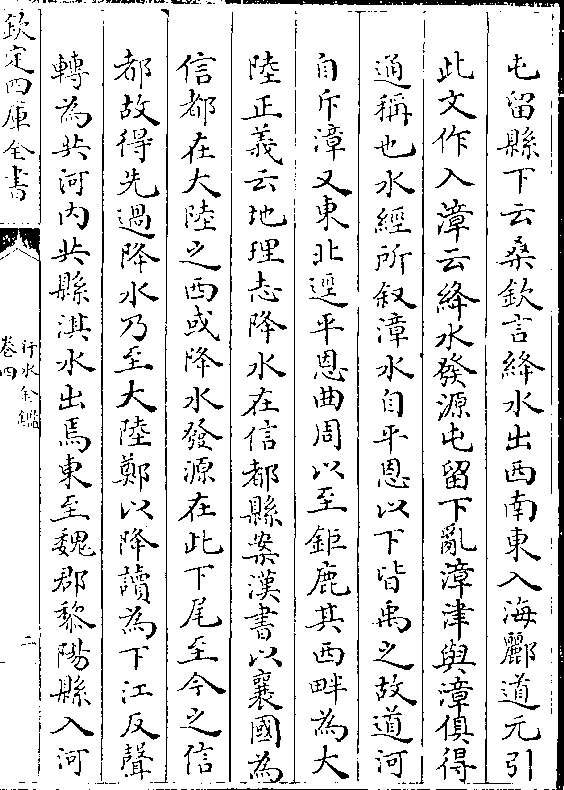 屯留縣下云桑欽言絳水出西南東入海酈道元引
此文作入漳云絳水發源屯留下亂漳津與漳俱得
通稱也水經所叙漳水自平恩以下皆禹之故道河
自斥漳又東北逕平恩曲周以至鉅鹿其西畔為大
陸正義云地理志降水在信都縣案漢書以襄國為
信都在大陸之西或降水發源在此下尾至今之信
都故得先過降水乃至大陸鄭以降讀為下江反聲
轉為共河内共縣淇水出焉東至魏郡黎陽縣入河
欽定四庫全書
行水金鑑
卷四
二